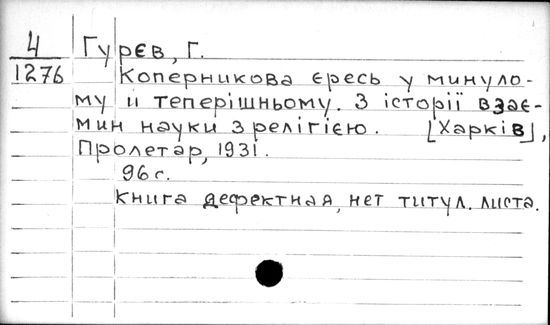 4 Гурєв, Г.
1276 Коперникова єресь у минуло-
му й теперішньому. З історії взає-
мин науки з релігією. [Харків],
Пролетар, 1931.
96 с.
Книга дефектная, нет титул. листа.